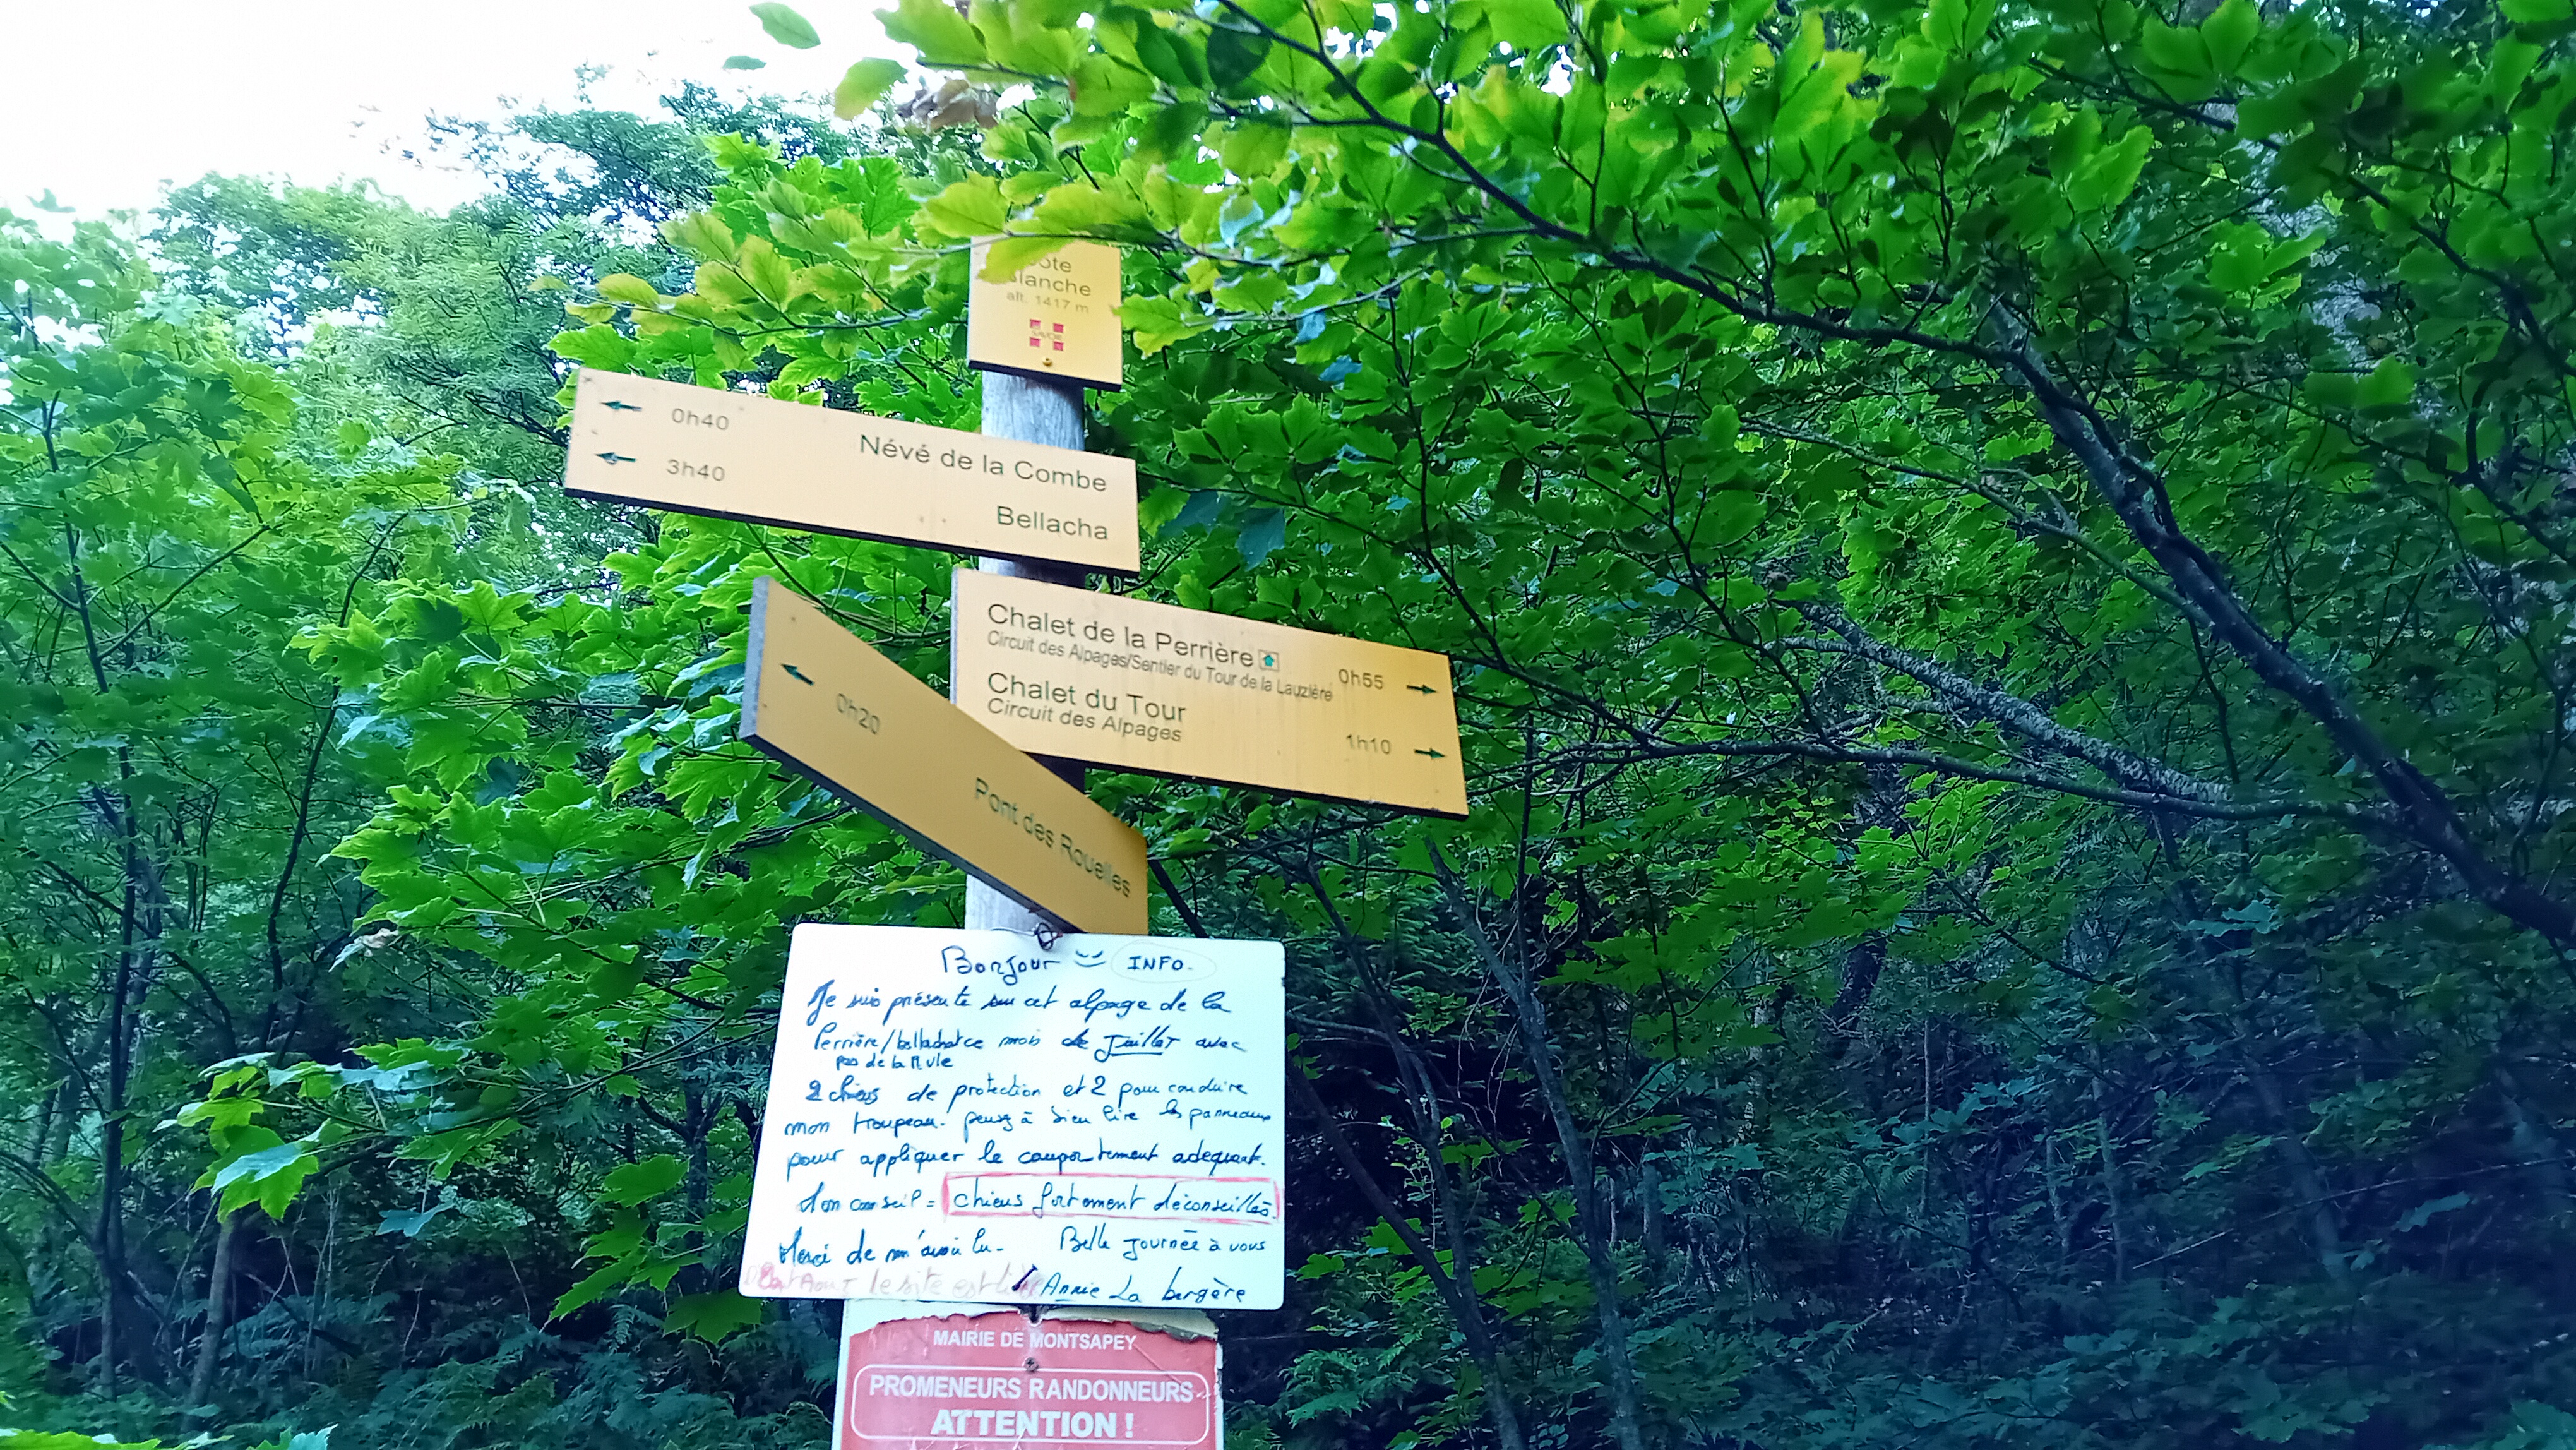 alt. 1417 m
SAVOIE
0h40 Névé de la Combe
3h40 Bellacha
Chalet de la Perrière 0h55
Circuit des Alpages/Sentier du Tour de la Lauzière
Chalet du Tour
Circuit des Alpages 1h10
0h20 Pont des Rouelles
Bonjour INFO.
Je suis présente sur cet alpage de la
Perrière/bellachat ce mois de Juillet avec
pas de la Mule
2 chiens de protection et 2 pour conduire
mon troupeau. pensez à bien lire les panneaux
pour appliquer le comportement adequat.
Mon conseil = chiens fortement déconseillés.
Merci de m'avoir lu. Belle journée à vous
Aout le site est
Annie La bergère
MAIRIE DE MONTSAPEY
PROMENEURS RANDONNEURS
ATTENTION !